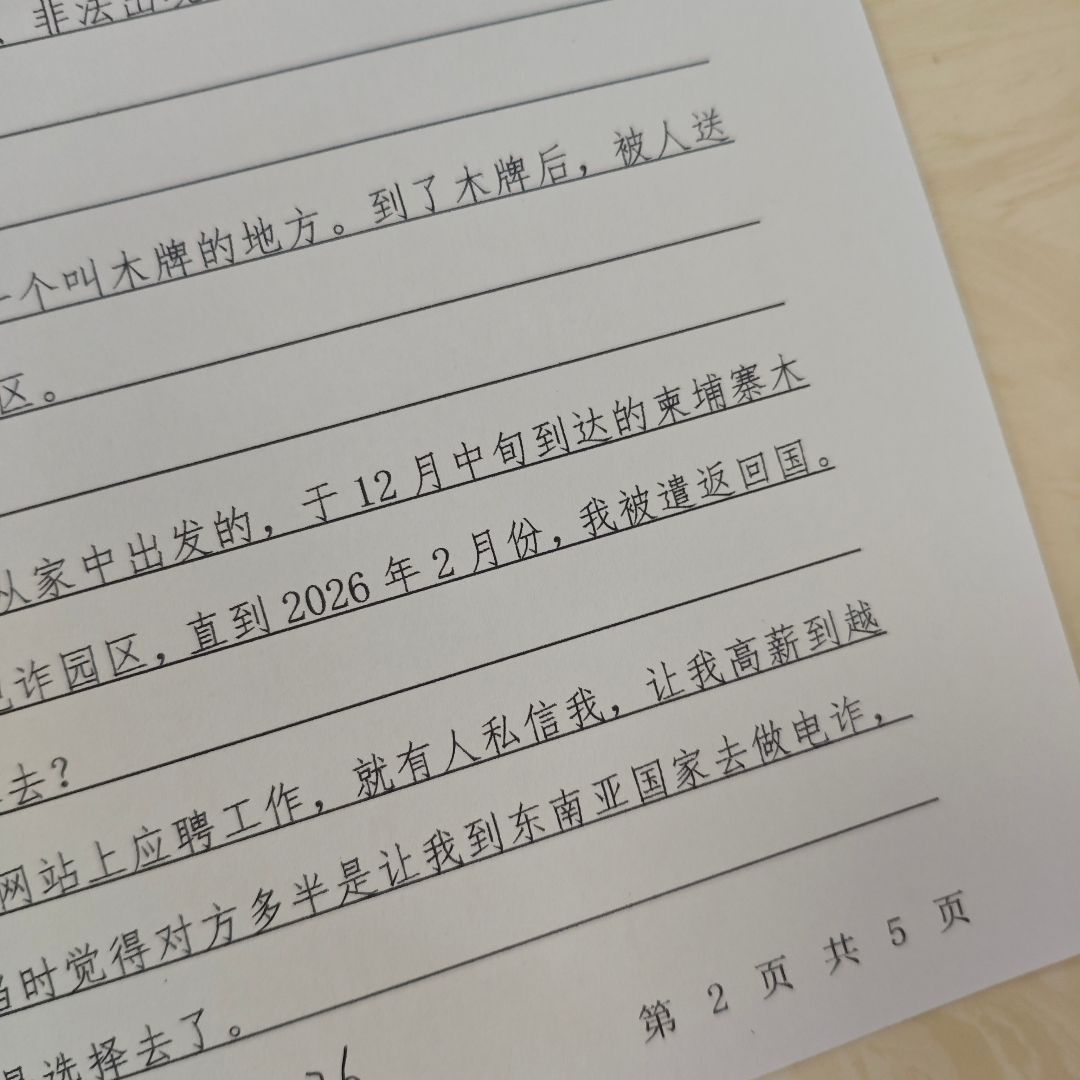 、非法出境
一个叫木牌的地方。到了木牌后，被人送
区。
从家中出发的，于12月中旬到达的柬埔寨木
电诈园区，直到2026年2月份，我被遣返回国。
去？
网站上应聘工作，就有人私信我，让我高薪到越
当时觉得对方多半是让我到东南亚国家去做电诈，
是选择去了。
第 2 页 共 5 页